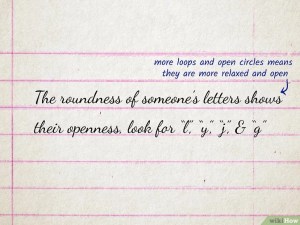 more loops and open circles means
they are more relaxed and open
The roundness of someone's letters shows
their openness, look for "l", "y", "j", & "g"
wikiHow